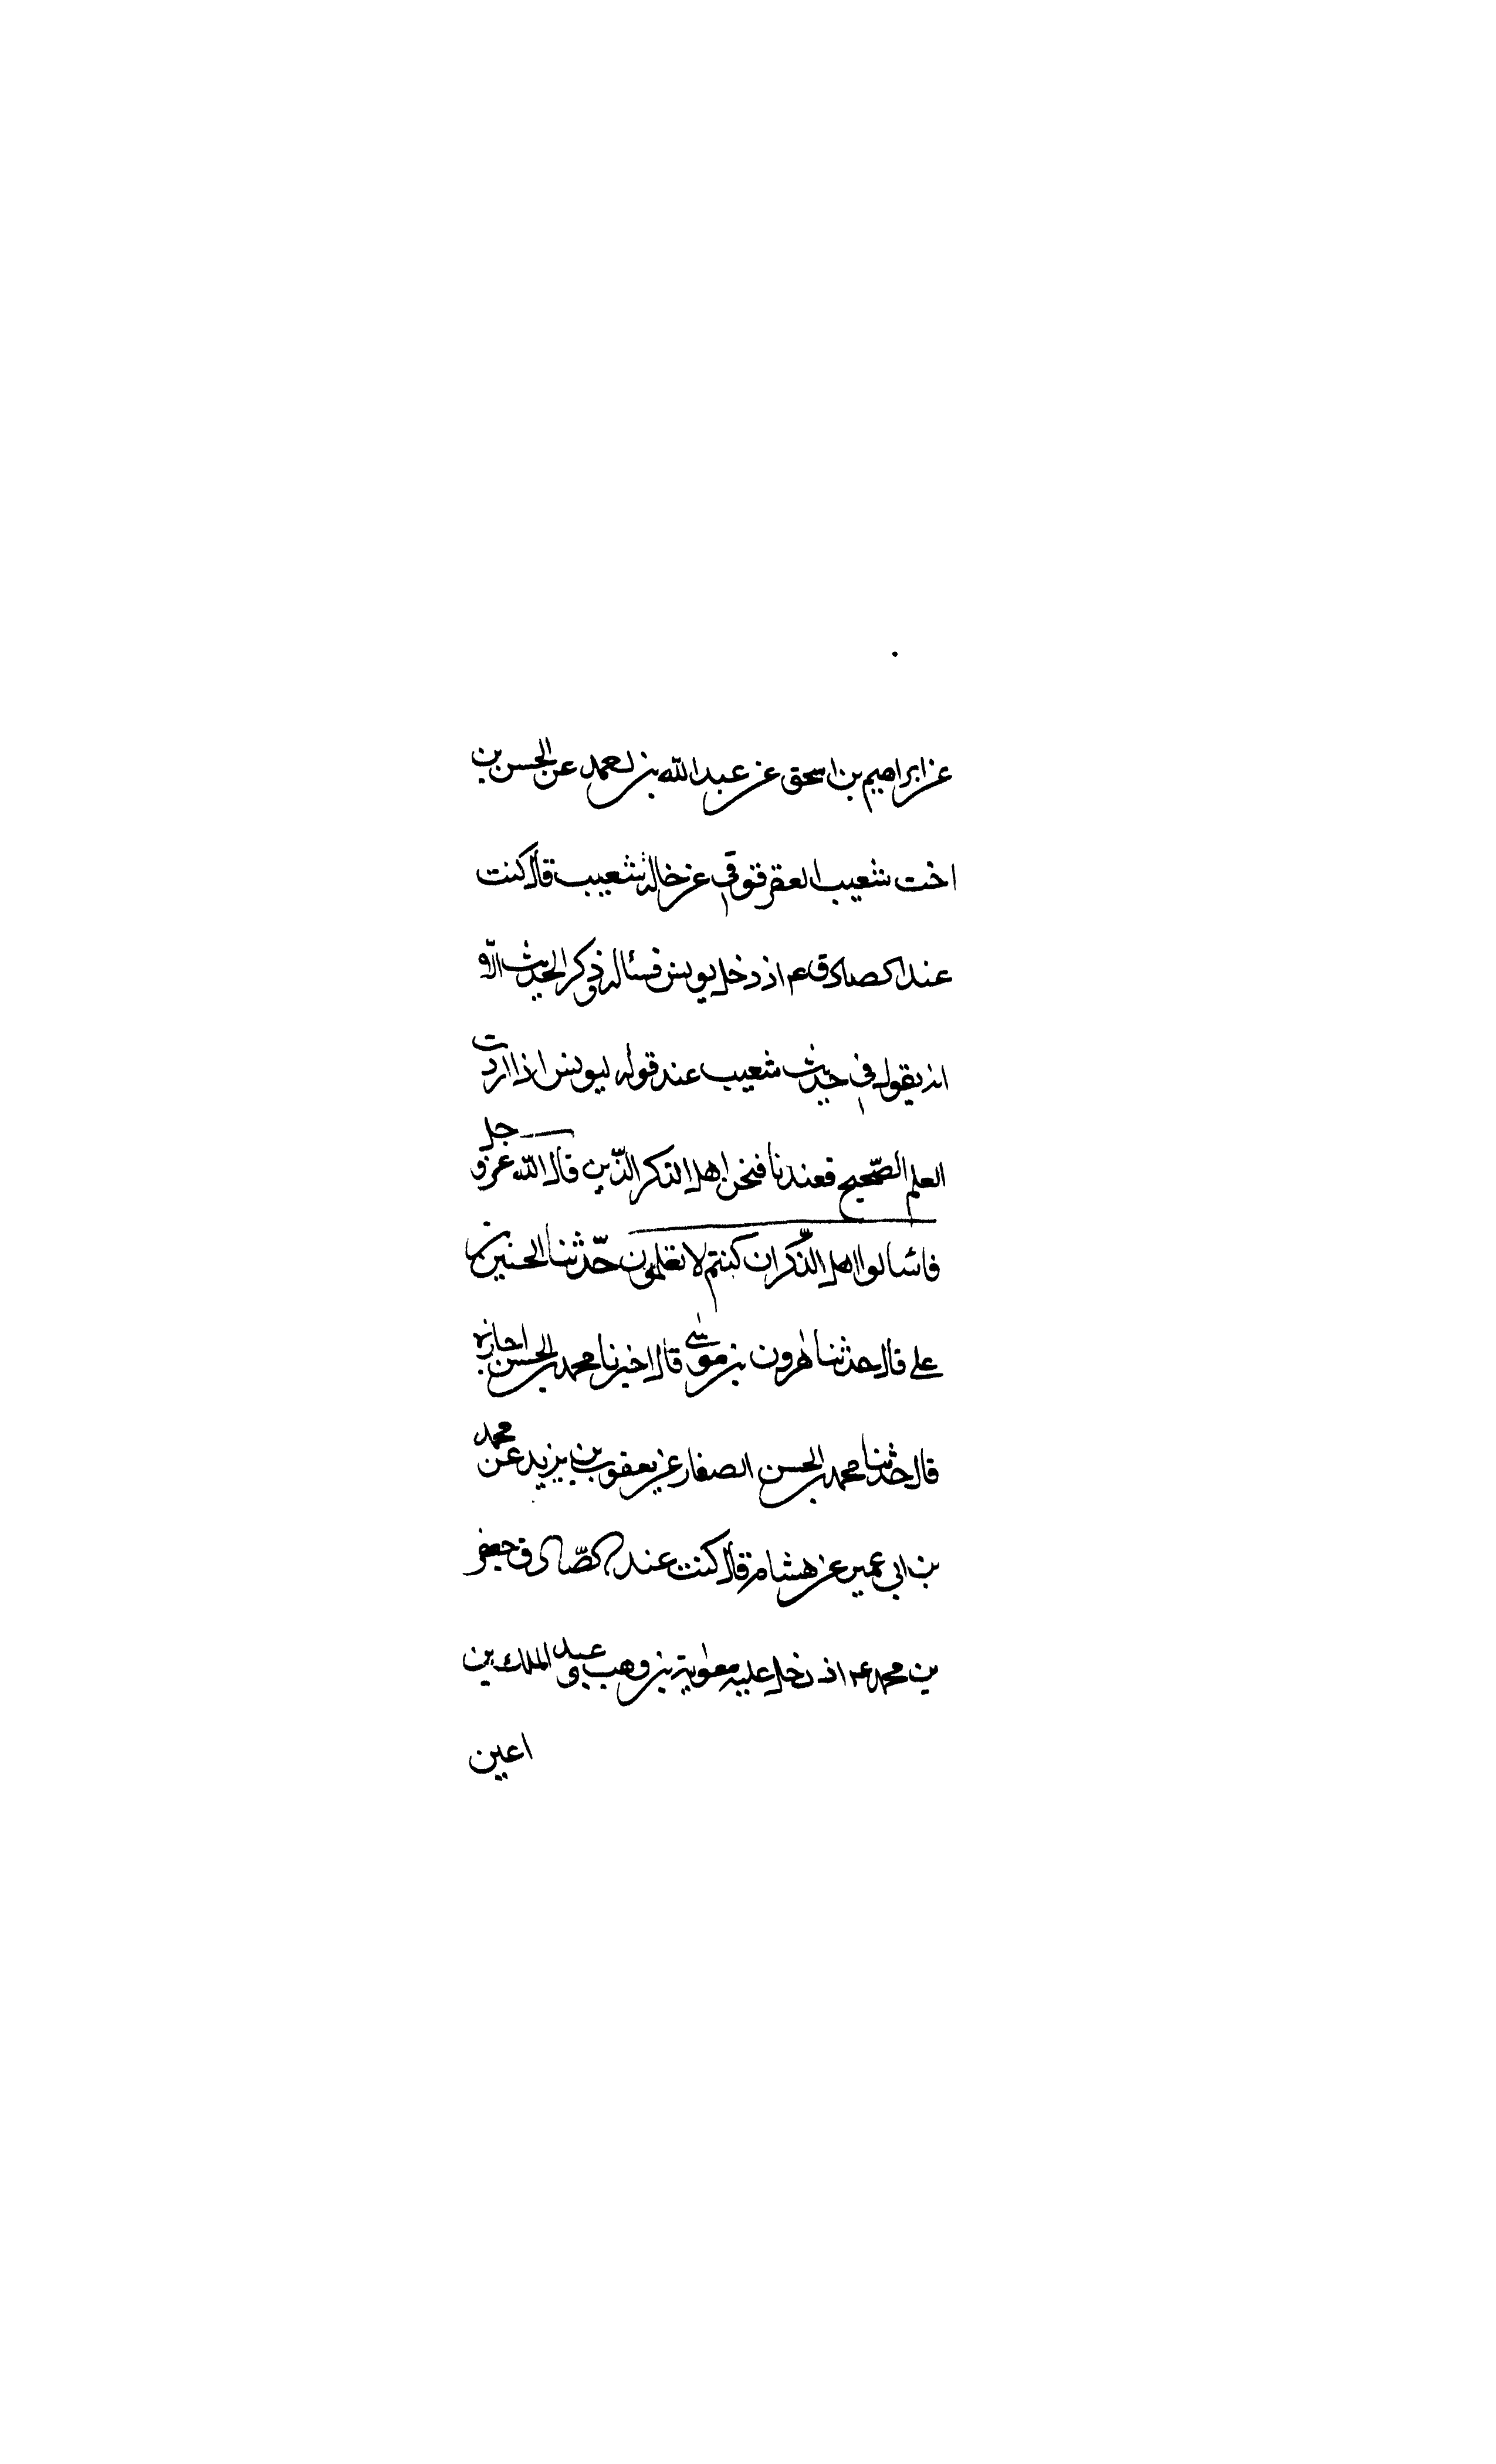 عن ابراهيم بن اسحق عن عبد الله بن احمد عن الحسن بن
اخت شعيب العقرقوقى عن خاله شعيب قال كنت
عند الصادق عم اذ دخل يونس فسئاله وذكر الحديث الا
انه يقول فى حديث شعيب عند قوله ليونس اذا اردت
العلم الصّحيح فعندنا فنحن اهل الذكر الذّين قال الله عز و جل
فاسئالوا اهل الذّكر ان كنتم لا تعلمون حدّثنا الحسين بن
على قال حدثنا هرون بن موسى قال اخبرنا محمد بن الحسن اجازه
قال حدثنا محمد بن الحسن الصفار عن يعقوب بن يزيد عن محمد
بن ابى عمير عن هشام قال كنت عند الصّادق جعفر
بن محمد عم اذ دخل عليه معوية بن وهب و عبد الملك بن
اعين